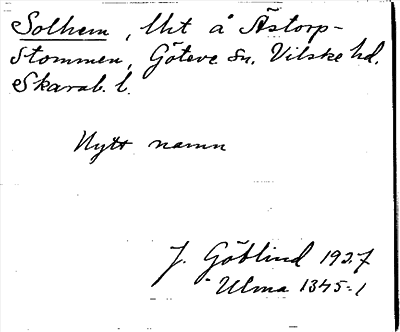 Solhem, lht å Åstorp-
Stommen, Göteve sn. Vilske hd.
Skarab. l.
Nytt namn
J. Göblind 1927
Ulma 1345:1